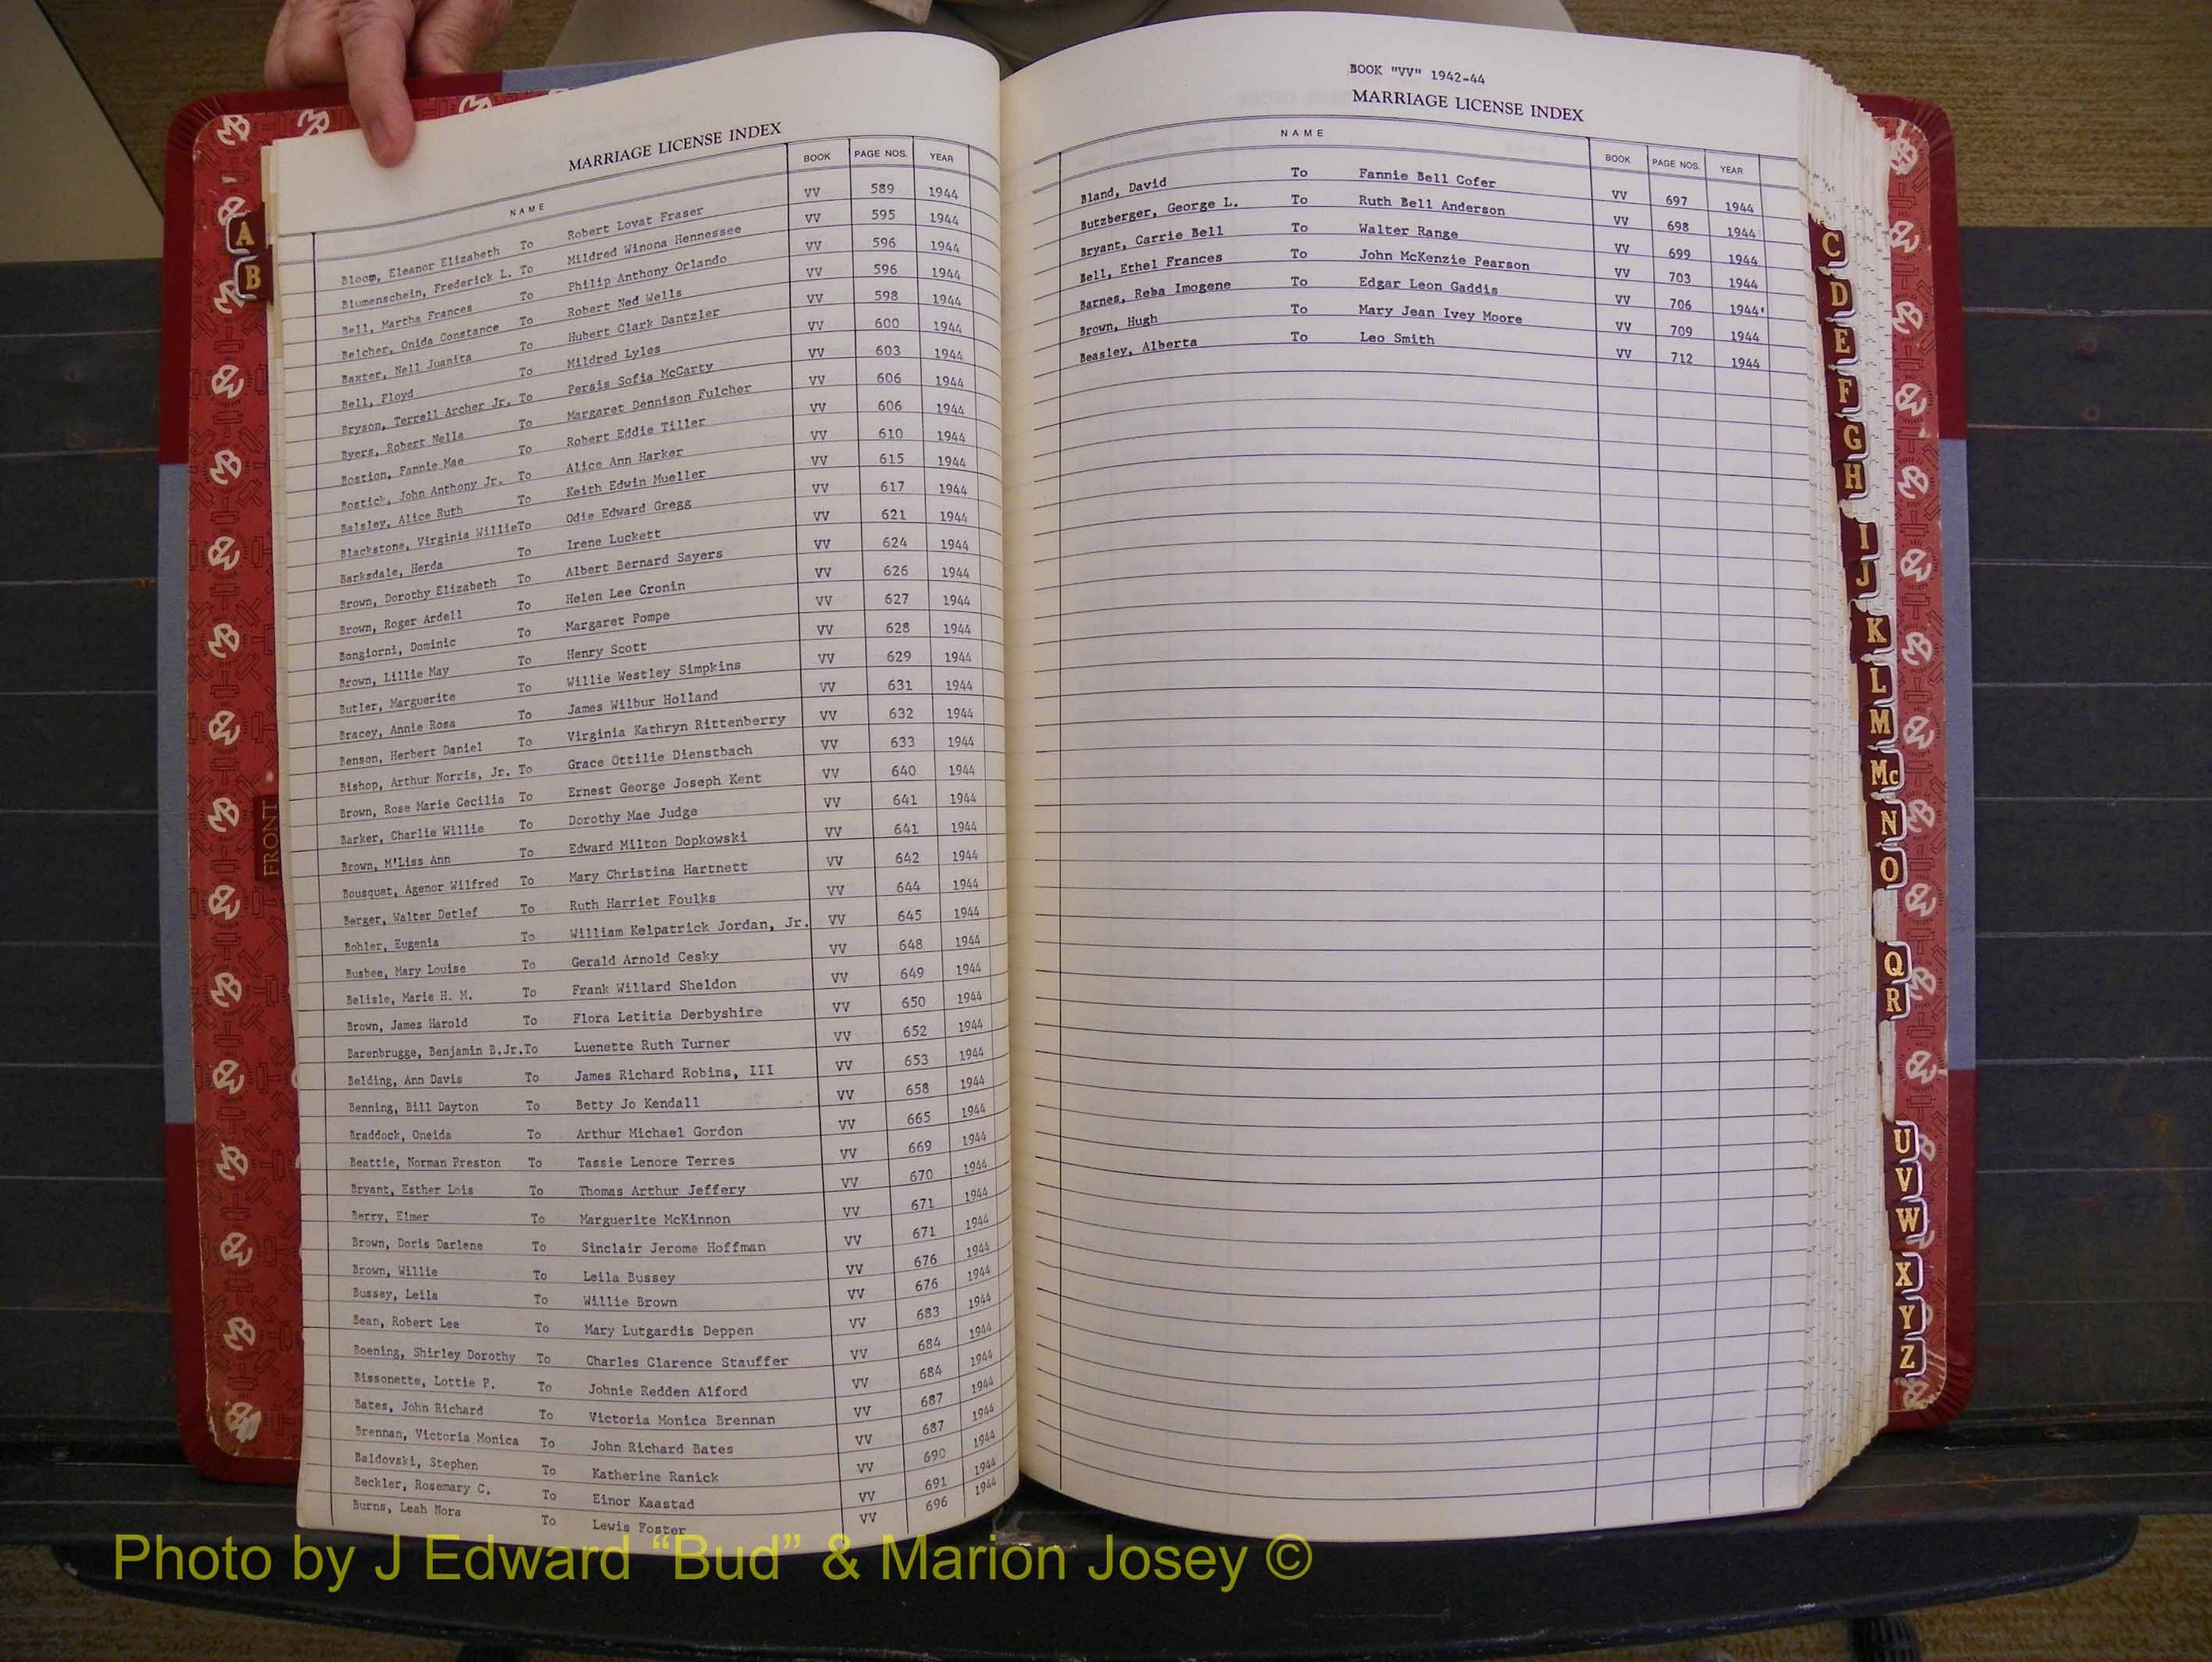 MARRIAGE LICENSE INDEX
NAME BOOK PAGE NOS. YEAR
Bloom, Eleanor Elizabeth To Robert Lovat Fraser VV 589 1944
Blumenschein, Frederick L. To Mildred Winona Hennessee VV 595 1944
Bell, Martha Frances To Philip Anthony Orlando VV 596 1944
Belcher, Onida Constance To Robert Ned Wells VV 596 1944
Baxter, Nell Juanita To Hubert Clark Dantzler VV 598 1944
Bell, Floyd To Mildred Lyles VV 600 1944
Bryson, Terrell Archer Jr. To Persis Sofia McCarty VV 603 1944
Byers, Robert Nella To Margaret Dennison Fulcher VV 606 1944
Bostion, Fannie Mae To Robert Eddie Tiller VV 606 1944
Bostick, John Anthony Jr. To Alice Ann Harker VV 610 1944
Balsley, Alice Ruth To Keith Edwin Mueller VV 615 1944
Blackstone, Virginia WillieTo Odie Edward Gregg VV 617 1944
Barksdale, Herda To Irene Luckett VV 621 1944
Brown, Dorothy Elizabeth To Albert Bernard Sayers VV 624 1944
Brown, Roger Ardell To Helen Lee Cronin VV 626 1944
Bongiorni, Dominic To Margaret Pompe VV 627 1944
Brown, Lillie May To Henry Scott VV 628 1944
Butler, Marguerite To Willie Westley Simpkins VV 629 1944
Bracey, Annie Rosa To James Wilbur Holland VV 631 1944
Benson, Herbert Daniel To Virginia Kathryn Rittenberry VV 632 1944
Bishop, Arthur Norris, Jr. To Grace Ottilie Dienstbach VV 633 1944
Brown, Rose Marie Cecilia To Ernest George Joseph Kent VV 640 1944
Barker, Charlie Willie To Dorothy Mae Judge VV 641 1944
Brown, M'Liss Ann To Edward Milton Dopkowski VV 641 1944
Bousquet, Agenor Wilfred To Mary Christina Hartnett VV 642 1944
Berger, Walter Detlef To Ruth Harriet Foulks VV 644 1944
Bohler, Eugenia To William Kelpatrick Jordan, Jr. VV 645 1944
Busbee, Mary Louise To Gerald Arnold Cesky VV 648 1944
Belisle, Marie H. M. To Frank Willard Sheldon VV 649 1944
Brown, James Harold To Flora Letitia Derbyshire VV 650 1944
Barenbrugge, Benjamin B.Jr.To Luenette Ruth Turner VV 652 1944
Belding, Ann Davis To James Richard Robins, III VV 653 1944
Benning, Bill Dayton To Betty Jo Kendall VV 658 1944
Braddock, Oneida To Arthur Michael Gordon VV 665 1944
Beattie, Norman Preston To Tassie Lenore Terres VV 669 1944
Bryant, Esther Lois To Thomas Arthur Jeffery VV 670 1944
Berry, Elmer To Marguerite McKinnon VV 671 1944
Brown, Doris Darlene To Sinclair Jerome Hoffman VV 671 1944
Brown, Willie To Leila Bussey VV 676 1944
Bussey, Leila To Willie Brown VV 676 1944
Bean, Robert Lee To Mary Lutgardis Deppen VV 683 1944
Boening, Shirley Dorothy To Charles Clarence Stauffer VV 684 1944
Bissonette, Lottie P. To Johnie Redden Alford VV 684 1944
Bates, John Richard To Victoria Monica Brennan VV 687 1944
Brennan, Victoria Monica To John Richard Bates VV 687 1944
Baldovski, Stephen To Katherine Ranick VV 690 1944
Beckler, Rosemary C. To Einor Kaastad VV 691 1944
Burns, Leah Nora To Lewis Foster VV 696 1944
A
B
FRONT
BOOK "VV" 1942-44
MARRIAGE LICENSE INDEX
NAME BOOK PAGE NOS. YEAR
Bland, David To Fannie Bell Cofer VV 697 1944
Butzberger, George L. To Ruth Bell Anderson VV 698 1944
Bryant, Carrie Bell To Walter Range VV 699 1944
Bell, Ethel Frances To John McKenzie Pearson VV 703 1944
Barnes, Reba Imogene To Edgar Leon Gaddis VV 706 1944
Brown, Hugh To Mary Jean Ivey Moore VV 709 1944
Beasley, Alberta To Leo Smith VV 712 1944
C
D
E
F
G
H
I
J
K
L
M
Mc
N
O
Q
R
U
V
W
X
Y
Z
Photo by J Edward “Bud” & Marion Josey ©